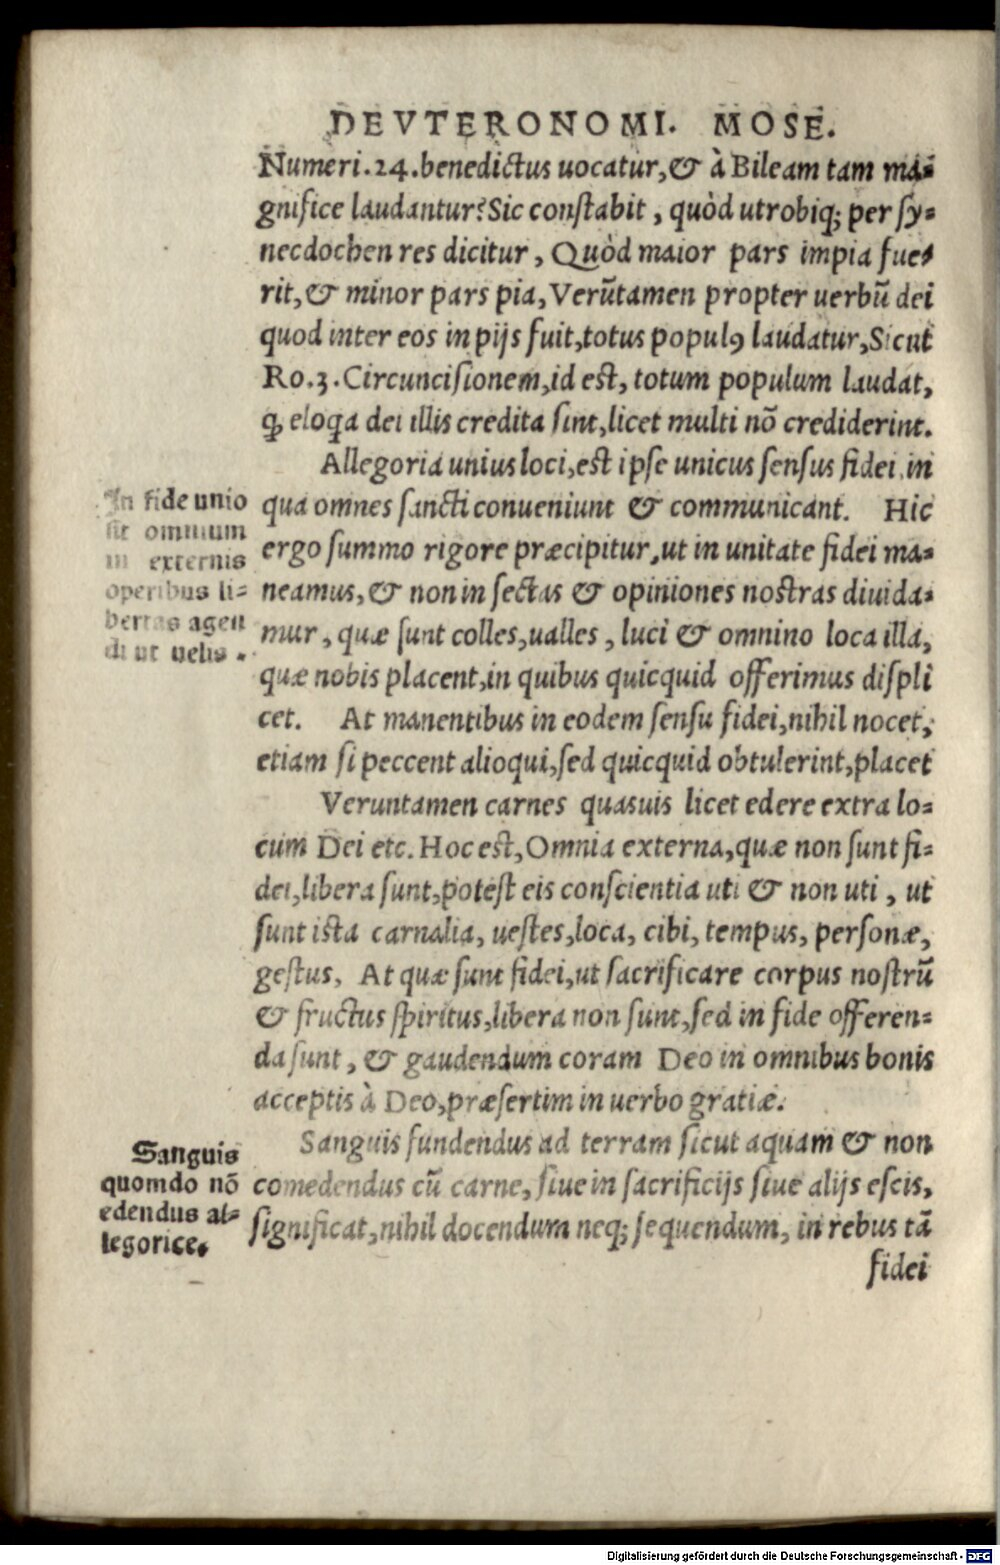 DEVTERONOMI. MOSE.
Numeri.24.benedictus uocatur,& à Bileam tam ma=
gnifice laudantur?Sic constabit, quòd utrobiq; per sy=
necdochen res dicitur, Quòd maior pars impia fue=
rit,& minor pars pia,Verūtamen propter uerbū dei
quod inter eos in pijs fuit,totus populꝰ laudatur,Sicut
Ro.3.Circuncisionem,id est, totum populum laudat,
ꝙ eloqa dei illis credita sint,licet multi nō crediderint.
Allegoria unius loci,est ipse unicus sensus fidei,in
qua omnes sancti conueniunt & communicant. Hic
ergo summo rigore præcipitur,ut in unitate fidei ma=
neamus,& non in sectas & opiniones nostras diuida=
mur, quæ sunt colles,ualles, luci & omnino loca illa,
quæ nobis placent,in quibus quicquid offerimus displi
cet. At manentibus in eodem sensu fidei,nihil nocet,
etiam si peccent alioqui,sed quicquid obtulerint,placet
Veruntamen carnes quasuis licet edere extra lo=
cum Dei etc. Hoc est,Omnia externa,quæ non sunt fi=
dei,libera sunt,potest eis conscientia uti & non uti, ut
sunt ista carnalia, uestes,loca, cibi, tempus, personæ,
gestus, At quæ sunt fidei,ut sacrificare corpus nostrū
& fructus spiritus,libera non sunt,sed in fide offeren=
da sunt, & gaudendum coram Deo in omnibus bonis
acceptis à Deo,præsertim in uerbo gratiæ.
Sanguis fundendus ad terram sicut aquam & non
comedendus cū carne, siue in sacrificijs siue alijs escis,
significat,nihil docendum neq; sequendum, in rebus tā
fidei
In fide unio
sit omnium
in externis
operibus li=
bertas agen
di ut uelis.
Sanguis
quomdo nō
edendus al=
legorice.
Digitalisierung gefördert durch die Deutsche Forschungsgemeinschaft - DFG